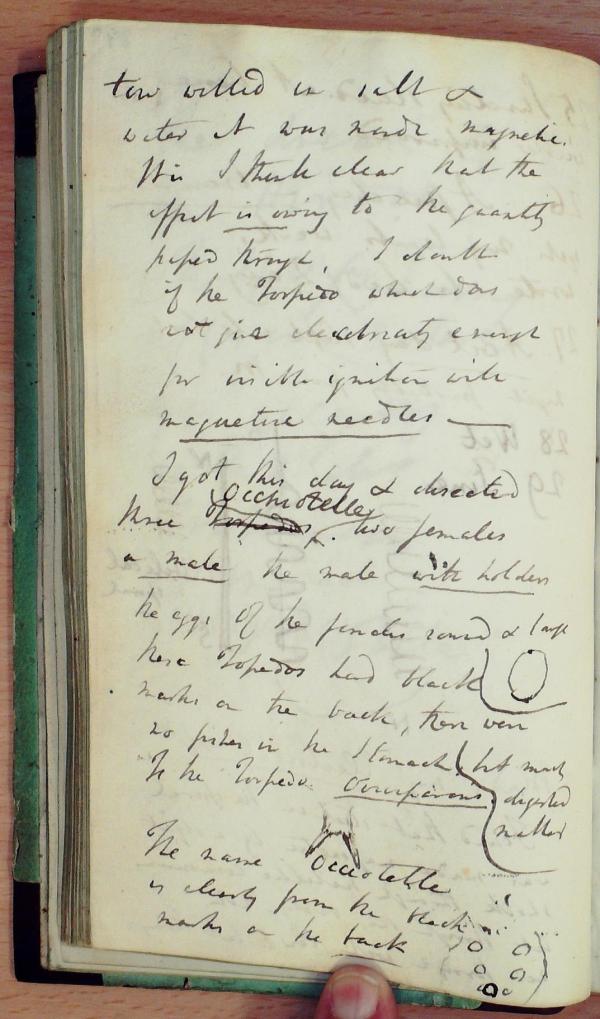 tow wetted in salt &
water it was made magnetic.
It is I think clear that the
effect is owing to the quantity
passed through. I doubt
if the Torpedo which does
not give electricity enough
for visible ignition will
magnetise needles —
I got this day & disected
Occhiotelle
three Torpedos, two females
a male the male with holders
the eggs of the females round & large
these Torpedos had black
marks on the back, there were
no fishes in the stomach but much
digested
matter
Is the Torpedo Oviviparous.
The name Occiotelle
is clearly from the black
marks on the back